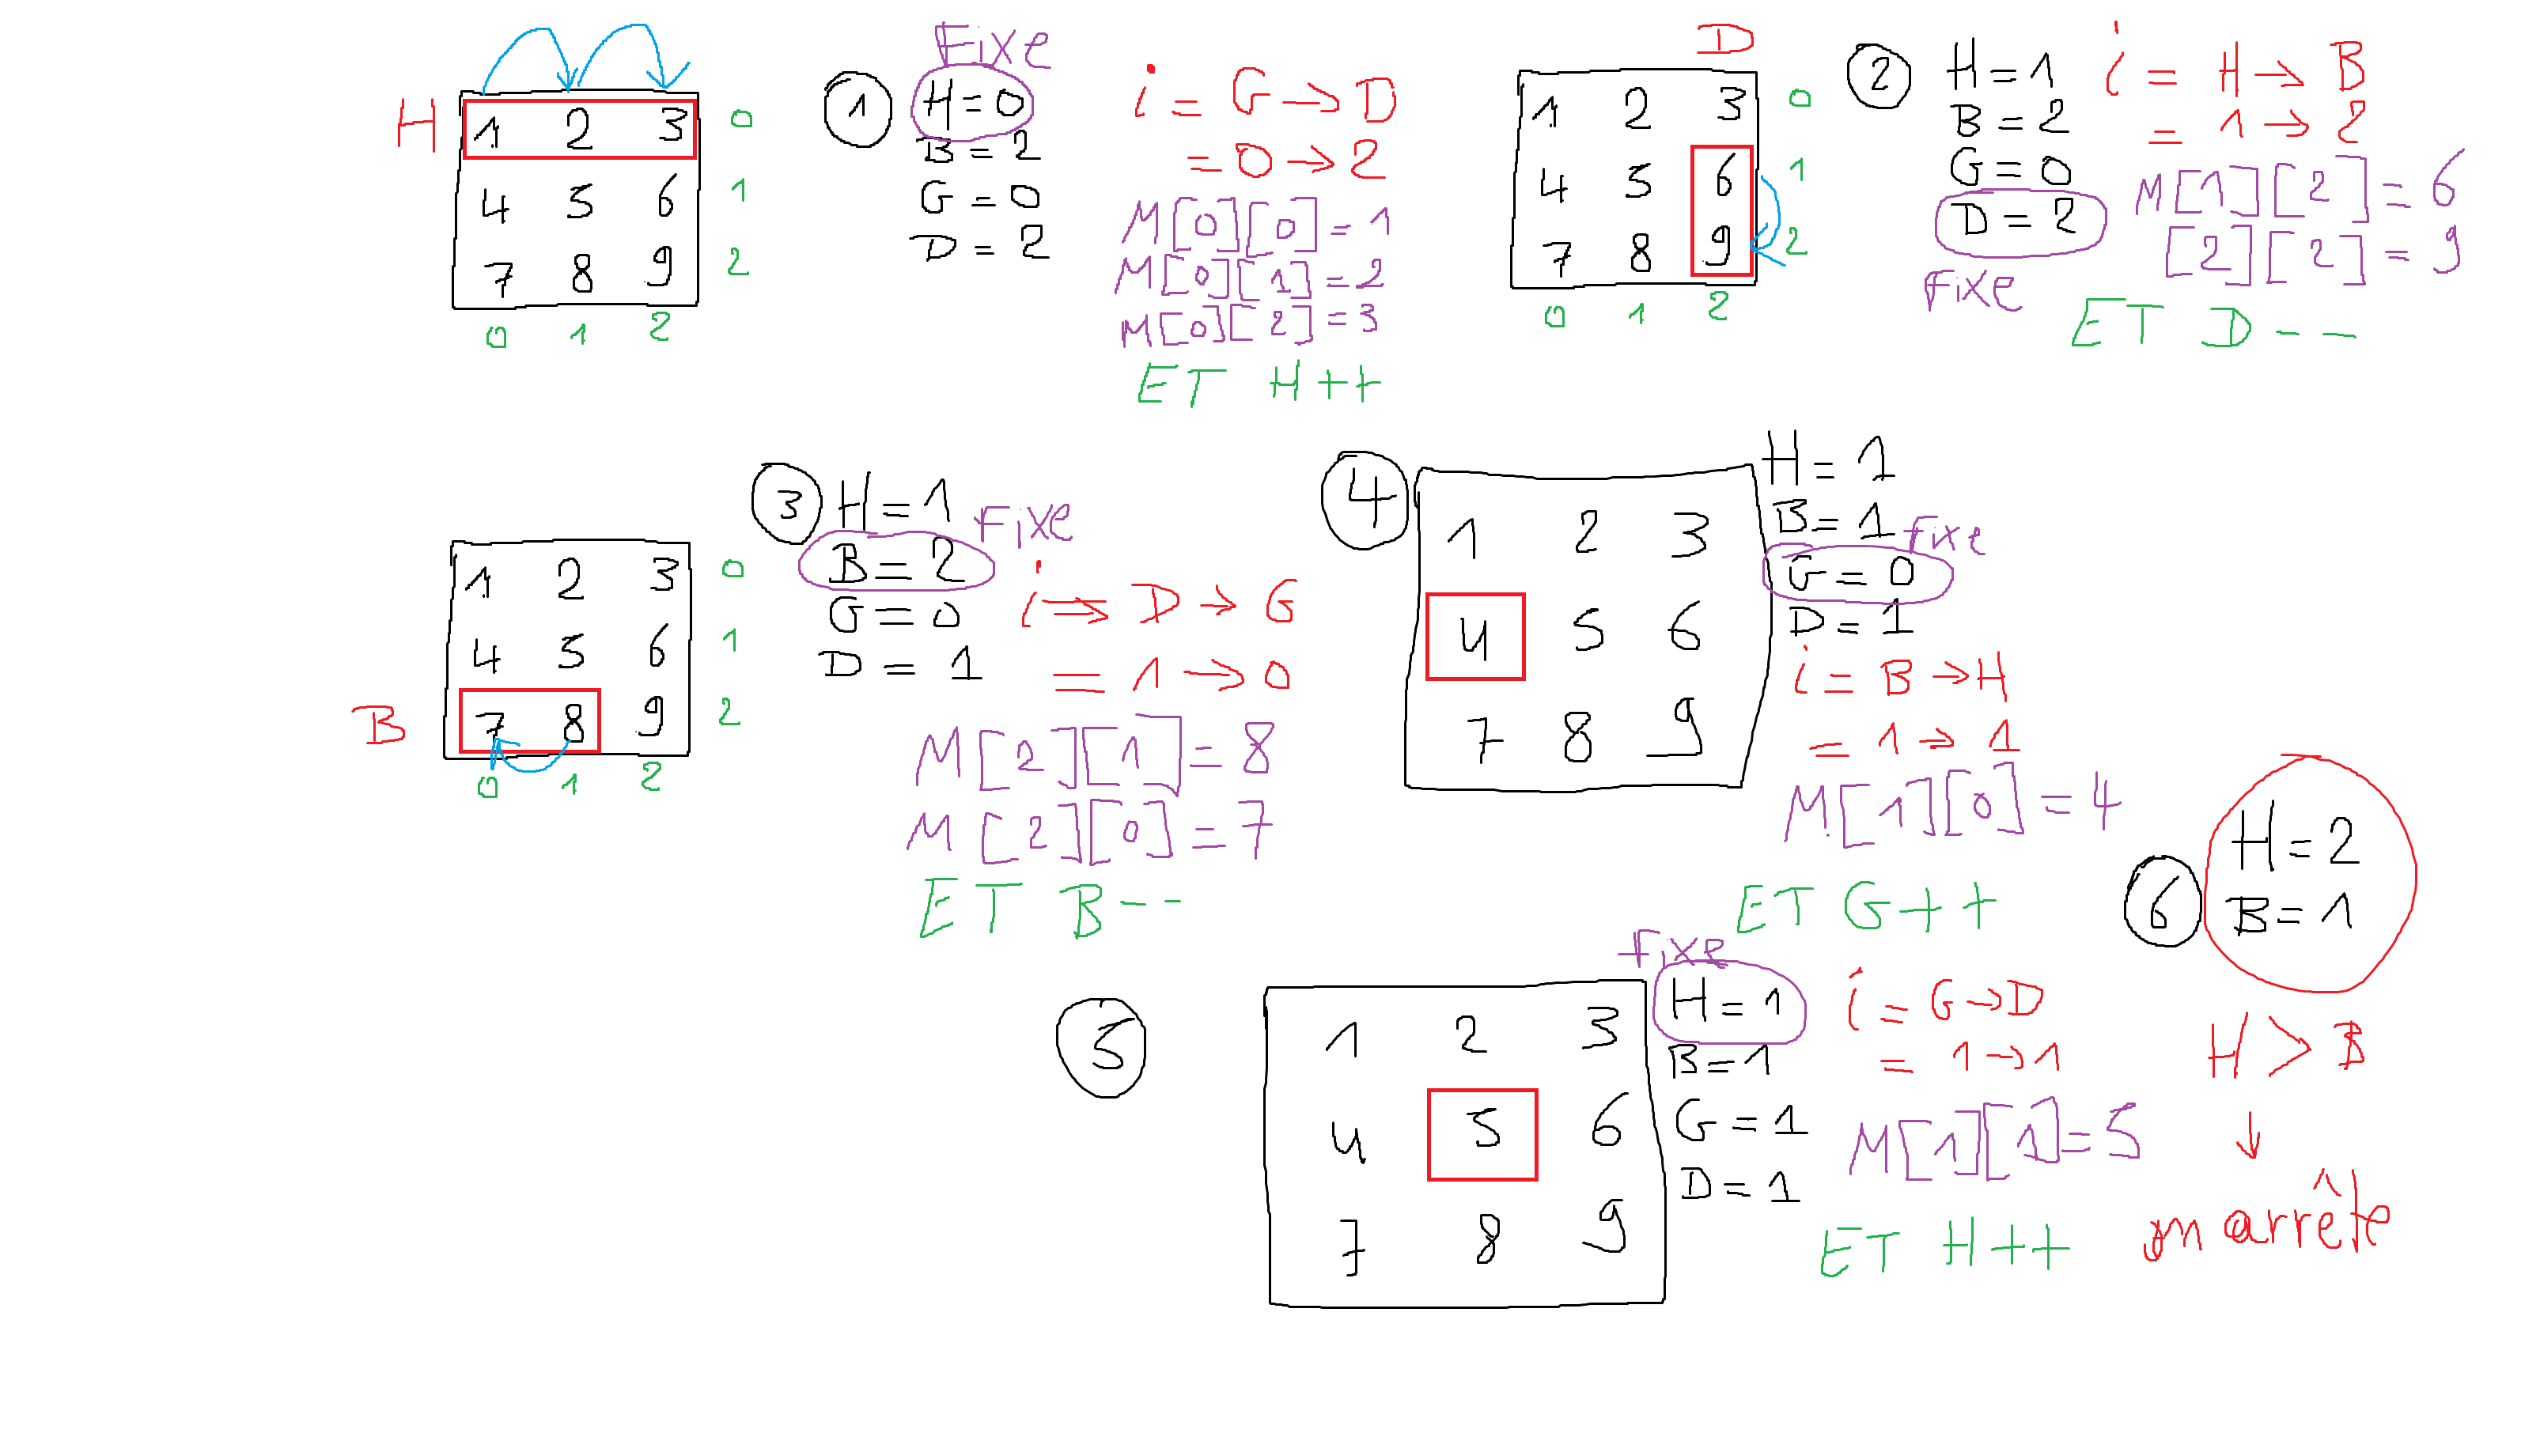 H
1 2 3 0
4 5 6 1
7 8 9 2
0 1 2
1
Fixe
H = 0
B = 2
G = 0
D = 2
i = G → D
= 0 → 2
M[0][0] = 1
M[0][1] = 2
M[0][2] = 3
ET H++
D
1 2 3 0
4 5 6 1
7 8 9 2
0 1 2
2
H = 1
B = 2
G = 0
D = 2
Fixe
i = H → B
= 1 → 2
M[1][2] = 6
[2][2] = 9
ET D--
1 2 3 0
4 5 6 1
B
7 8 9 2
0 1 2
3
H = 1
Fixe
B = 2
G = 0
D = 1
i => D → G
= 1 → 0
M[2][1] = 8
M[2][0] = 7
ET B--
4
1 2 3
4 5 6
7 8 9
H = 1
B = 1
Fixe
G = 0
D = 1
i = B → H
= 1 → 1
M[1][0] = 4
ET G++
5
1 2 3
4 5 6
7 8 9
Fixe
H = 1
B = 1
G = 1
D = 1
i = G → D
= 1 → 1
M[1][1] = 5
ET H++
6
H = 2
B = 1
H > B
↓
on arrête